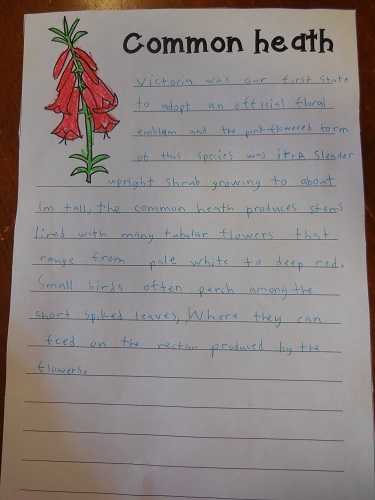 Common heath
Victoria was our first state
to adopt an official floral
emblem and the pink-flowered form
of this species was it. A slender
upright shrub growing to about
1m tall, the common heath produces stems
lined with many tubular flowers that
range from pale white to deep red.
Small birds often perch among the
short spiked leaves, Where they can
feed on the nectar produced by the
flowers.